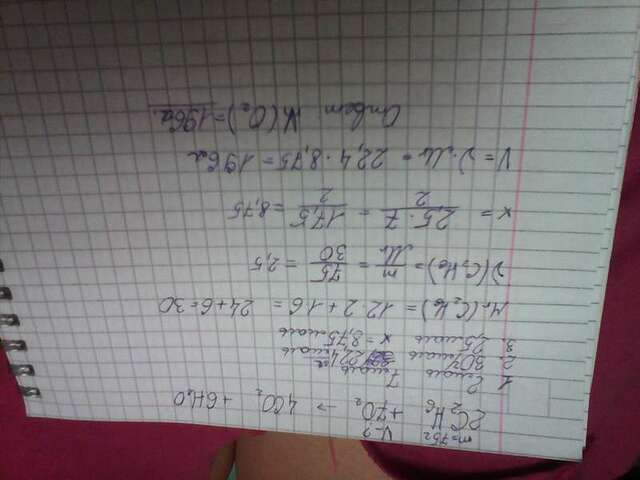 m=75г V-?
2C₂H₆ +7O₂ → 4CO₂ +6H₂O
1. 2моль 7моль
2. 30г/моль 22,4 моль
3. 2,5моль x=8,75моль
Mr(C₂H₆)= 12·2+1·6= 24+6=30
ν(C₂H₆)= m/M = 75/30 = 2,5
x = 2,5·7/2 = 17,5/2 = 8,75
V=ν·M = 22,4·8,75=196л
Ответ V(O₂)=196л.